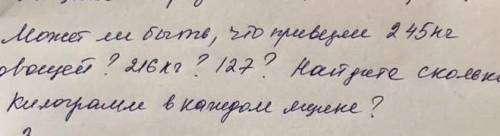 Может ли быть, что привезли 245кг
овощей? 216кг? 127? Найдите сколько
килограмм в каждом ящике?